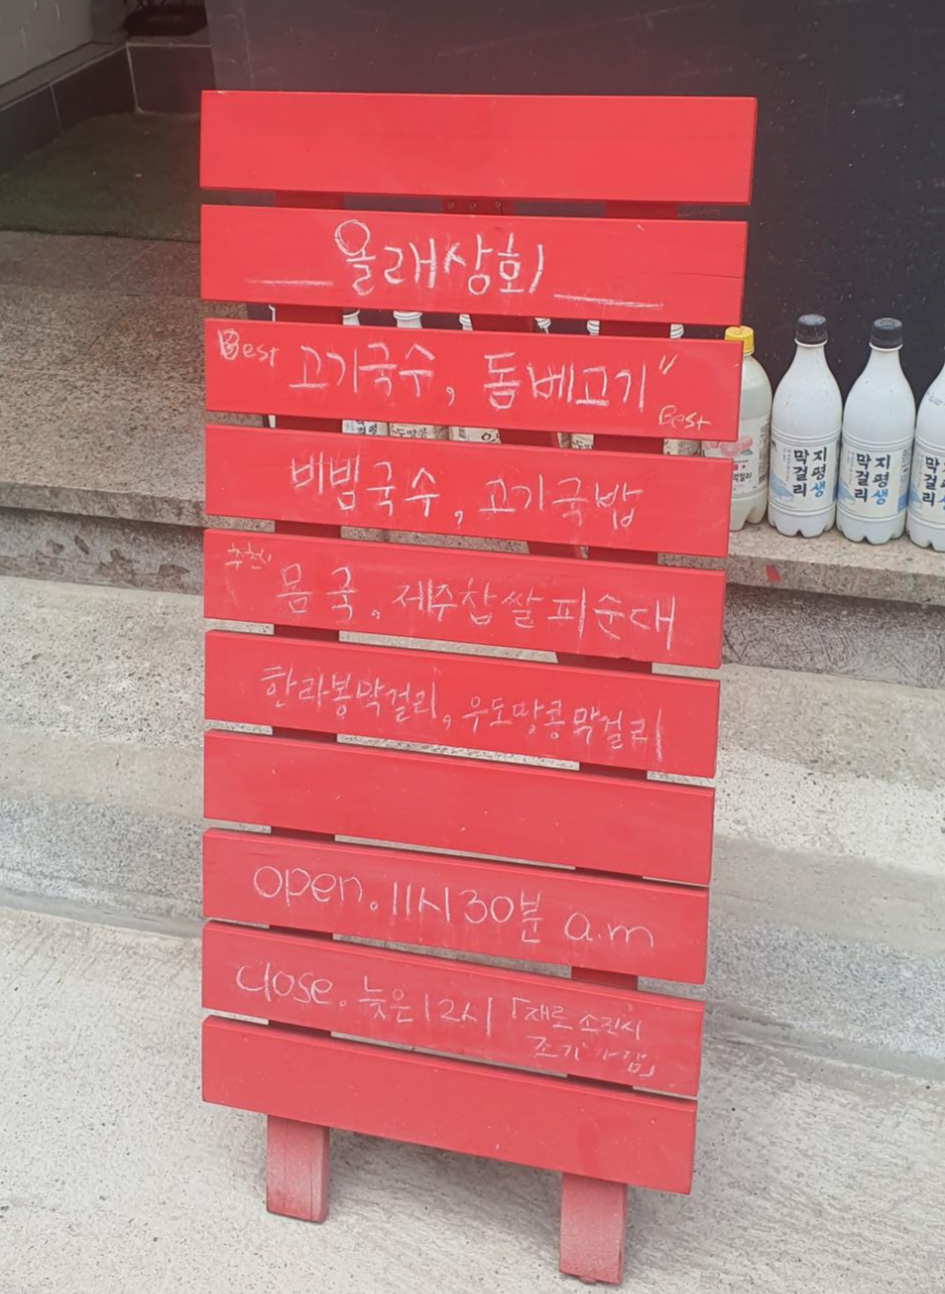 올래상회
Best 고기국수, 돔베고기" Best
비빔국수, 고기국밥
추천" 몸국, 제주찹쌀피순대
한라봉막걸리, 우도땅콩막걸리
open. 11시30분 a.m
close. 늦은 12시 「재료 소진시
조기마감」
지평생
막걸리
지평생
막걸리